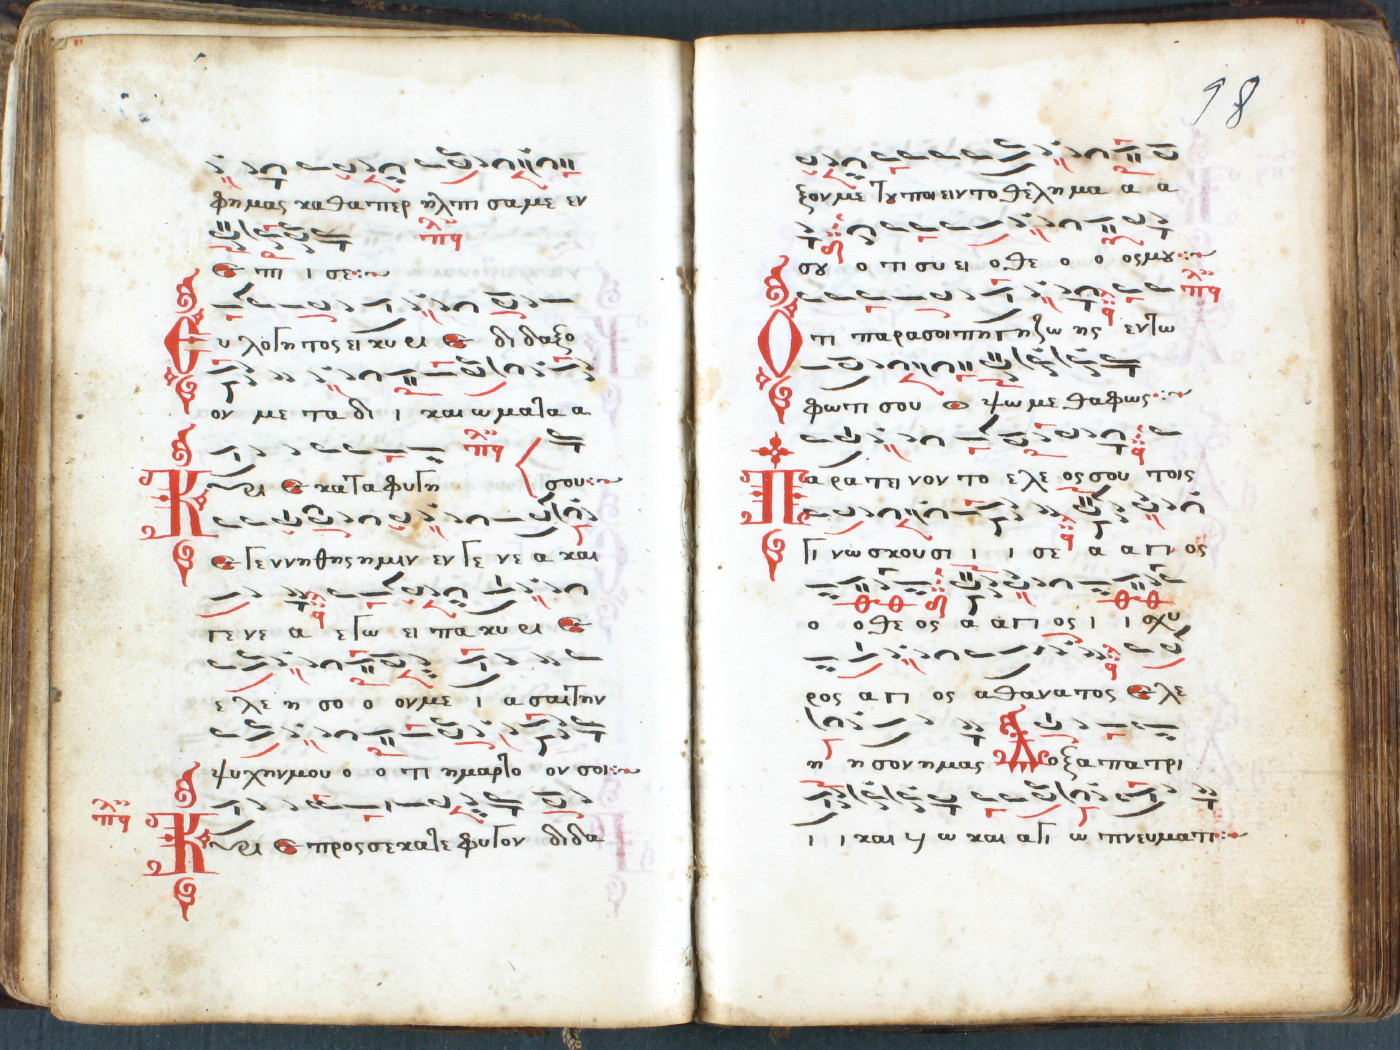 φημας καθαπερ ηλπι σαμε εν
ε πι ι σε
Ευ λογη τος ει κυ ρι ε δι δαξο
ον με τα δι ι και ω ματα α
σου
Κυ ρι ε κατα φυγη
ε γεννηθης ημιν εν γε νε α και
γε νε α εγω ει πα κυ ρι ε
ε λε η σο ο ον με ι α σαι την
ψυχην μου ο ο τι ημαρτο ον σοι
Κυ ρι ε προς σε κατε φυγον διδα
98
ξον με του ποι ειν το θελημα α α
σου ο τι συ ει ο θε ο ο ος μου
Ο τι παρα σοι πηγη ζω ης εν τω
φωτι σου ο ψωμεθα φως
Πα ρα τει νον το ε λε ος σου τοις
γι νω σκου σι ι ι σε α α γι ος
ο ο θε ος α α γι ος ι ι σχυ
ρος α γι ος α θανατος ε λε
η η σον ημας Δοξα πατρι
ι ι και υι ω και αγι ω πνευματι